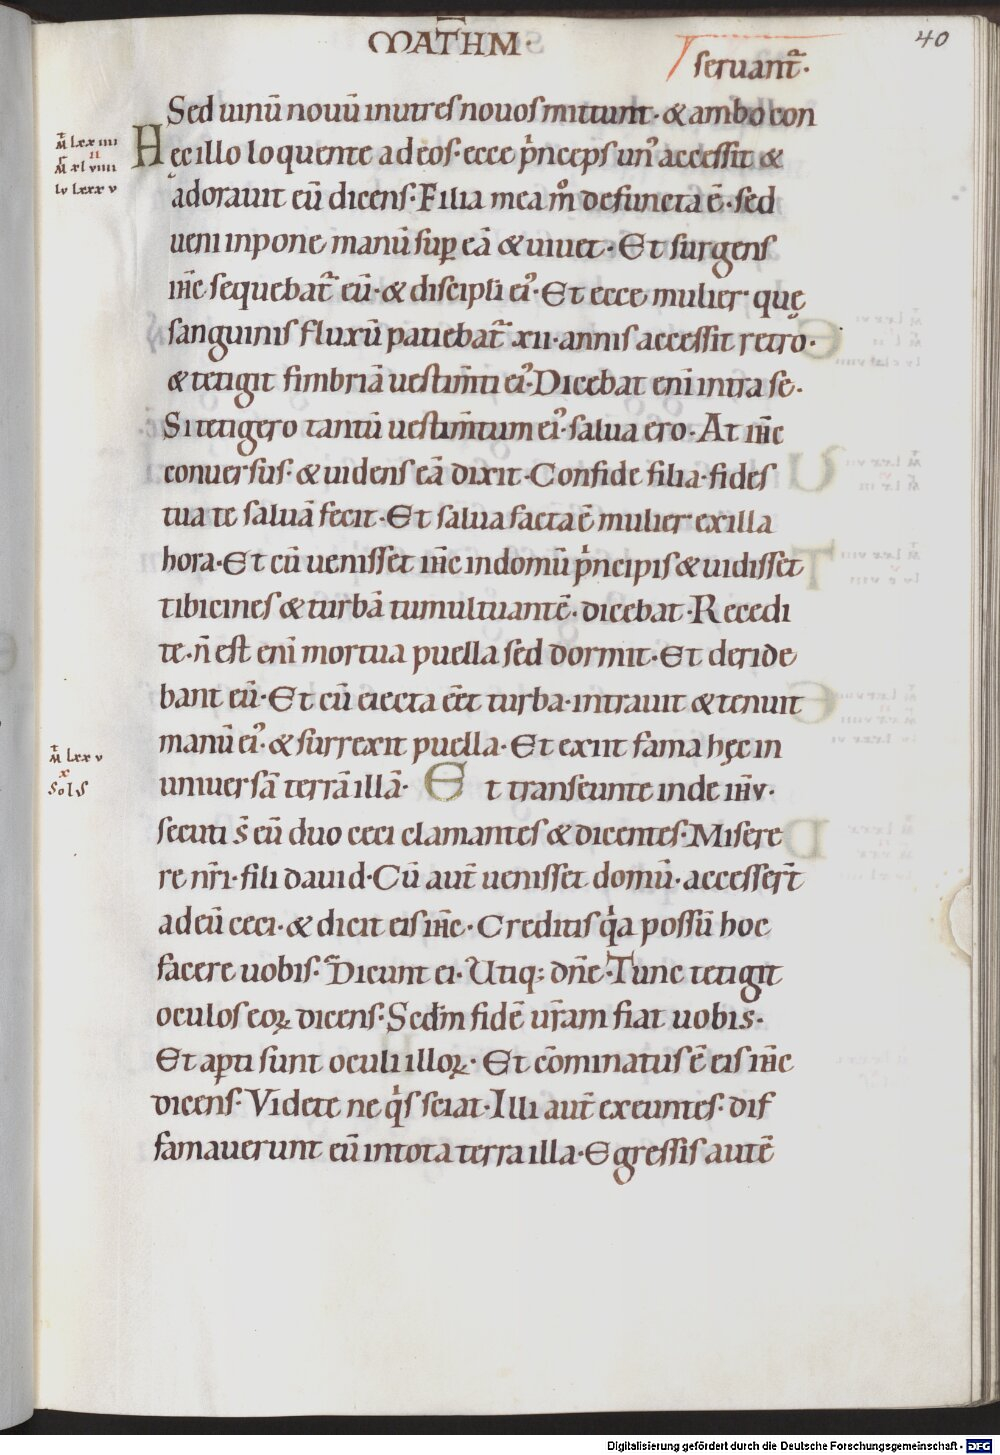 MATHM·
40
seruant᷑·
Sed uinū nouū inutres nouos mittunt· & ambo con
Hec illo loquente ad eos· ecce pͥnceps unꝰ accessit &
adorauit eū dicens· Filia mea mͦ defuncta ē· sed
ueni inpone manū suꝑ eā & uiuet· Et surgens
ih̄c sequebat᷑ eū· & discipli eiꝰ· Et ecce mulier que
sanguinis fluxū patiebat᷑ xii· annis accessit retro·
& tetigit fimbriā uestim̄ti eiꝰ· Dicebat eni intra se·
Si tetigero tantū uestim̄tum eiꝰ· salua ero· At ih̄c
conuersus· & uidens eā dixit· Confide filia· fides
tua te saluā fecit· Et salua facta ē mulier ex illa
hora· Et cū uenisset ih̄c indomū pͥncipis & uidisset
tibicines & turbā tumultuantē· dicebat· Recedi
te· n̄ est eni mortua puella sed dormit· Et deride
bant eū· Et cū eiecta eēt turba· intrauit & tenuit
manū eiꝰ· & surrexit puella· Et exiit fama hęc in
uniuersā terrā illā· Et transeunte inde ih̄v·
secuti s̄ eū duo ceci clamantes & dicentes· Misere
re nr̄i· fili dauid· Cū aut̄ uenisset domū· accesser̄t
ad eū ceci· & dicit eis ih̄c· Creditis qͥa possū hoc
facere uobis· Dicunt ei· Utiq; dn̄e· Tunc tetigit
oculos eoꝝ dicens· Sedm̄ fidē ur̄am fiat uobis·
Et aꝑti sunt oculi illoꝝ· Et cōminatus ē eis ih̄c
dicens· Videte ne qͥs sciat· Illi aut̄ exeuntes· dif
famauerunt eū intota terra illa· Egressis autē
M̄ lxx iiii
M̄ xl viiii
lv lxxx v
M̄ lxx v
x
Solꝰ
Digitalisierung gefördert durch die Deutsche Forschungsgemeinschaft - DFG